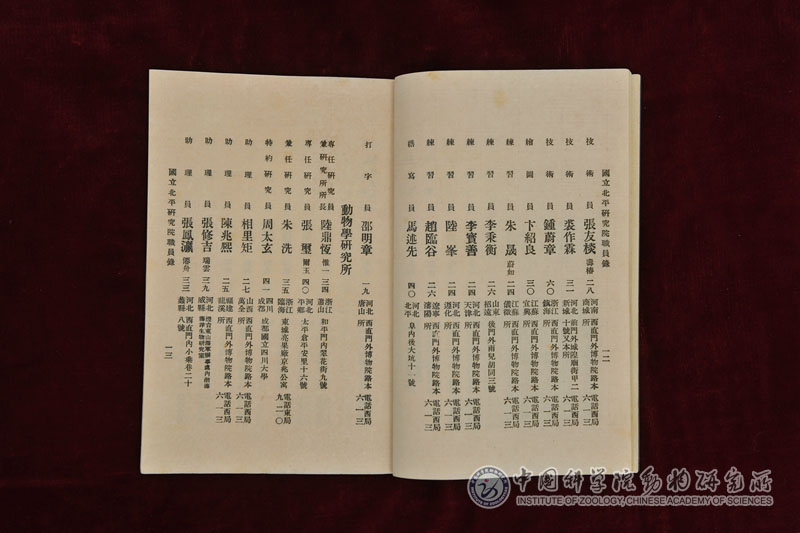 國立北平研究院職員錄
一二
技術員 張友棪 壽椿 二八 河南商城 西直門外博物院路本所 電話西局六一三
技術員 裘作霖 三一 河北新城 前門外城隍廟街甲二十號又本所 電話西局六一三
技術員 鍾蔚章 六〇 浙江鎮海 西直門外博物院路本所 電話西局六一三
繪圖員 卞紹良 三〇 江蘇宜興 西直門外博物院路本所 電話西局六一三
練習員 朱晟 蔚如 二四 江蘇儀徵 西直門外博物院路本所 電話西局六一三
練習員 李秉衡 二六 山東招遠 後門外南兒胡同三號
練習員 李寶善 二四 河北天津 西直門外博物院路本所 電話西局六一三
練習員 陸峯 二四 河北遵化 西直門外博物院路本所 電話西局六一三
練習員 趙臨谷 二六 遼寧瀋陽 西直門外博物院路本所 電話西局六一三
繕寫員 馬述先 四〇 河北北平 阜內後大坑十一號
打字員 邵明章 一九 河北唐山 西直門外博物院路本所 電話西局六一三
動物學研究所
專任研究員兼研究所所長 陸鼎恆 惟一 三四 浙江蕭山 和平門內翠花街九號
專任研究員 張璽 爾玉 四〇 河北平鄉 太平倉平安里十六號
兼任研究員 朱洗 三五 浙江臨海 東城亮果廠京兆公寓 電話東局九二〇
特約研究員 周太玄 四一 四川成都 成都國立四川大學
助理員 相里矩 二七 山西萬全 西直門外博物院路本所 電話西局六一三
助理員 陳兆熙 二五 福建龍溪 西直門外博物院路本所 電話西局六一三
助理員 張修吉 瑞雲 三九 河北威縣
助理員 張鳳瀛 蓬舟 三三 河北蠡縣 西直門內小巷二十八號
國立北平研究院職員錄
一三
中国科学院动物研究所
INSTITUTE OF ZOOLOGY, CHINESE ACADEMY OF SCIENCES